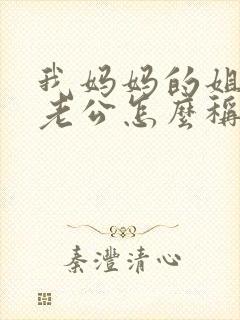 我妈妈的姐
老公怎麼稱
秦灃清心